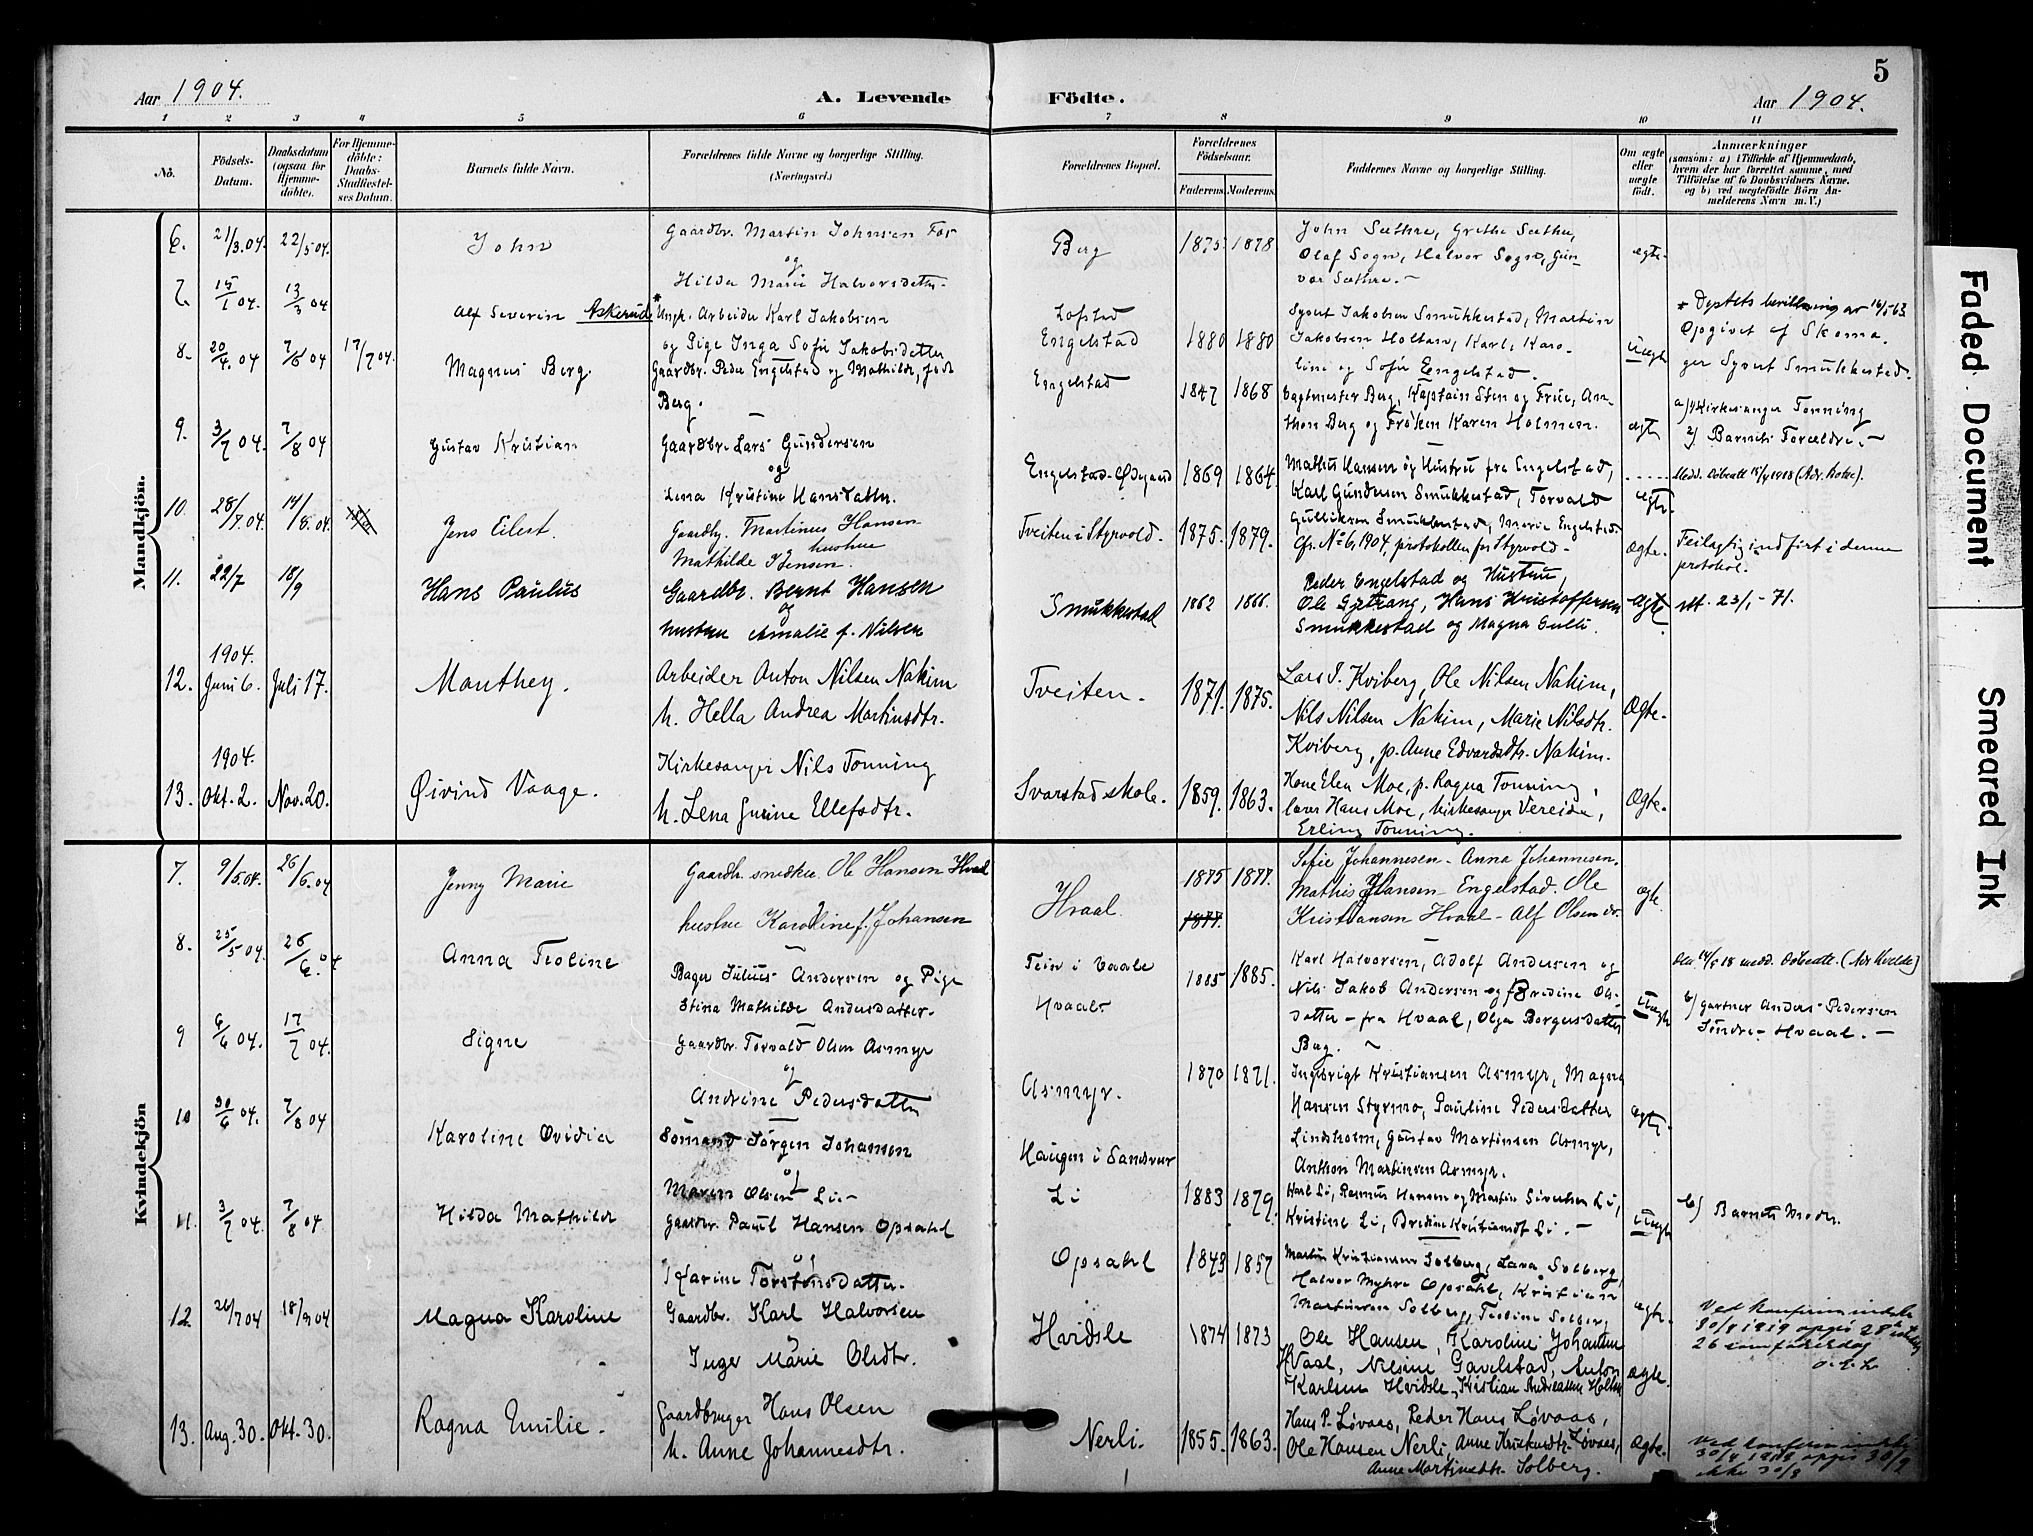 5
Aar 1904.
A. Levende Födte.
Aar 1904.
1 2 3 4 5 6 7 8 9 10 11
No.
Födsels-Datum.
Daabsdatum (ogsaa for Hjemme-döbte).
For Hjemme-döbte: Daabs-Stadfæstel-ses Datum.
Barnets fulde Navn.
Forældrenes fulde Navne og borgerlige Stilling. (Næringsvei.)
Forældrenes Bopæl.
Forældrenes Födselsaar.
Faderens. Moderens.
Faddernes Navne og borgerlige Stilling.
Om ægte eller uægte födt.
Anmærkninger
(saasom: a) i Tilfælde af Hjemmedaab,
hvem der har forrettet samme, med
Tilföielse af to Daabsvidners Navne,
og b) ved uægtefödte Börn An-
melderens Navn m. V.)
Mandkjön.
6. 21/3.04. 22/5 04. John
Gaardbr. Martin Johnsen
og
Hilda Marie Halvorsdatter.
Berg 1875 1878
John Sæthre, Grethe Sæthre,
Olaf Sogn, Halvor Sogn, Gun-
vor Sæthre. ægte.
7. 15/1 04. 13/3 04 Alf Severin Askerud
* Ungk. Arbeider Karl Jakobsen
og Pige Inga Sofie Jakobsdatter
Lofstad
Engelstad 1880 1880
Syvert Jakobsen Smukkestad, Martin
Jakobsen Holtan, Karl, Karo-
line og Sofie Engelstad. uægte
* Deptets bevillning av 16/5 63
Opgivet af Skoma-
ger Syvert Smukkestad.
8. 20/4. 04 7/8 04 17/7 04. Magnus Berg.
Gaardbr. Peder Engelstad og Mathilde, født
Berg.
Engelstad 1847 1868
Vagtmester Berg, Kaptein Sten og Frue, An-
thon Berg og Frøken Karen Holmen. ægte
a) 1) Kirkesanger Tonning
2) Barnets Forældre.
9. 3/7 04. 7/8 04 Gustav Kristian
Gaardbr. Lars Gundersen
og
Lena Kristine Hansdatter.
Engelstad-Ødegaard 1869 1864
Mathis Hansen og Hustru fra Engelstad,
Karl Gundersen Smukkestad, Torvald
Gulliksen Smukkestad, Marie Engelstad. ægte.
10. 28/7.04. 14/8.04. Jens Eilert.
Gaardbr. Martinus Hansen
hustru
Mathilde Jensen.
Tveiten i Styrvold. 1875. 1879.
Cfr. No 6, 1904, protokollen for Styrvold. Ægte.
Feilagtig indført i denne
protokol.
11. 22/7 18/9 Hans Paulus
Gaardbr. Bernt Hansen
og
hustru Amalie f. Nilsen
Smukkestad 1862 1866.
Peder Engelstad og Hustru,
Ole Gjetrang, Hans Kristoffersen
Smukkestad og Magna Gulli. Ægte
att. 23/1 - 71.
12. 1904. Juni 6. Juli 17. Manthey.
Arbeider Anton Nilsen Nakim
h. Hella Andrea Martinsdtr.
Tveiten. 1871. 1875.
Lars P. Kviberg, Ole Nilsen Nakim,
Nils Nilsen Nakim, Marie Nilsdtr.
Kviberg, p. Anne Edvardsdtr. Nakim. Ægte.
13. 1904. Okt. 2. Nov. 20. Øivind Vaage.
Kirkesanger Nils Tonning
h. Lena Gurine Ellefsdtr.
Svarstad skole. 1859. 1863.
Kone Elen Moe, p. Ragna Tonning,
lærer Hans Moe, kirkesanger Vereide,
Erling Tonning. Ægte.
Kvindekjön
7. 9/5.04. 26/6.04 Jenny Marie
Gaardbr. snedker Ole Hansen Hvaal
hustru Karoline f. Johansen
Hvaal. 1875 1877.
1877.
Sofie Johannesen - Anna Johannesen.
Mathis Hansen - Engelstad. Ole
Kristiansen Hvaal - Alf Olsen do. ægte.
8. 25/5 04. 26/6.04 Anna Teoline
Bager Julius Andersen og Pige
Stina Mathilde Andersdatter.
Tein i Vaale
Hvaal 1885 1885.
Karl Halvorsen, Adolf Andersen og
Nils Jakob Andersen og Bredine Ols-
datter - fra Hvaal, Olga Borgersdatter
Berg. uægte
b) gartner Anders Pedersen
Søndre-Hvaal.
9 6/6 04. 17/7 04. Signe
Gaardbr. Torvald Olsen Asmyr
og
Andrine Pedersdatter
Asmyr. 1870 1871.
Ingebrigt Kristiansen Asmyr, Magna
Hansen Styrmo, Pauline Pedersdatter
Lindsholm, Gustav Martinsen Asmyr,
Anthon Martinsen Asmyr. ægte.
10 30/6 04. 7/8 04 Karoline Ovidia
Sømand Jørgen Johansen
og
Maren Olsen Li.
Haugen i Sandsvær
Li 1883 1879.
Karl Li, Rasmus Hansen og Martin Sivertsen Li,
Kristine Li, Bredine Kristiansdt Li. uægte
b) Barnets Moder.
11. 3/7 04. 7/8 04 Hilda Mathilde
Gaardbr. Paul Hansen Opsahl
og
Karine Torstensdatter.
Opsahl 1843 1857
Martin Kristiansen Solberg, Lava Solberg,
Halvor Myhre Opsahl, Kristian
Martinsen Solberg, Teoline Solberg ægte.
12. 26/7 04 18/9 04 Magna Karoline
Gaardbr. Karl Halvorsen
Inger Marie Olsdtr.
Hvidsle 1874 1873
Ole Hansen, Karoline Johansen
Hvaal, Nilsine Gavelstad, Anton
Karlsen Hvidsle, Kristian Andreassen Holtan ægte.
13. Aug. 30. Okt. 30. Ragna Emilie.
Gaardbruger Hans Olsen
h. Anne Johannesdtr.
Nerli. 1855. 1863.
Hans P. Løvaas, Peder Hans. Løvaas,
Ole Hansen Nerli, Anne Kristiansdtr. Løvaas,
Anne Martinsdtr. Solberg. Ægte.
Faded Document
Smeared Ink